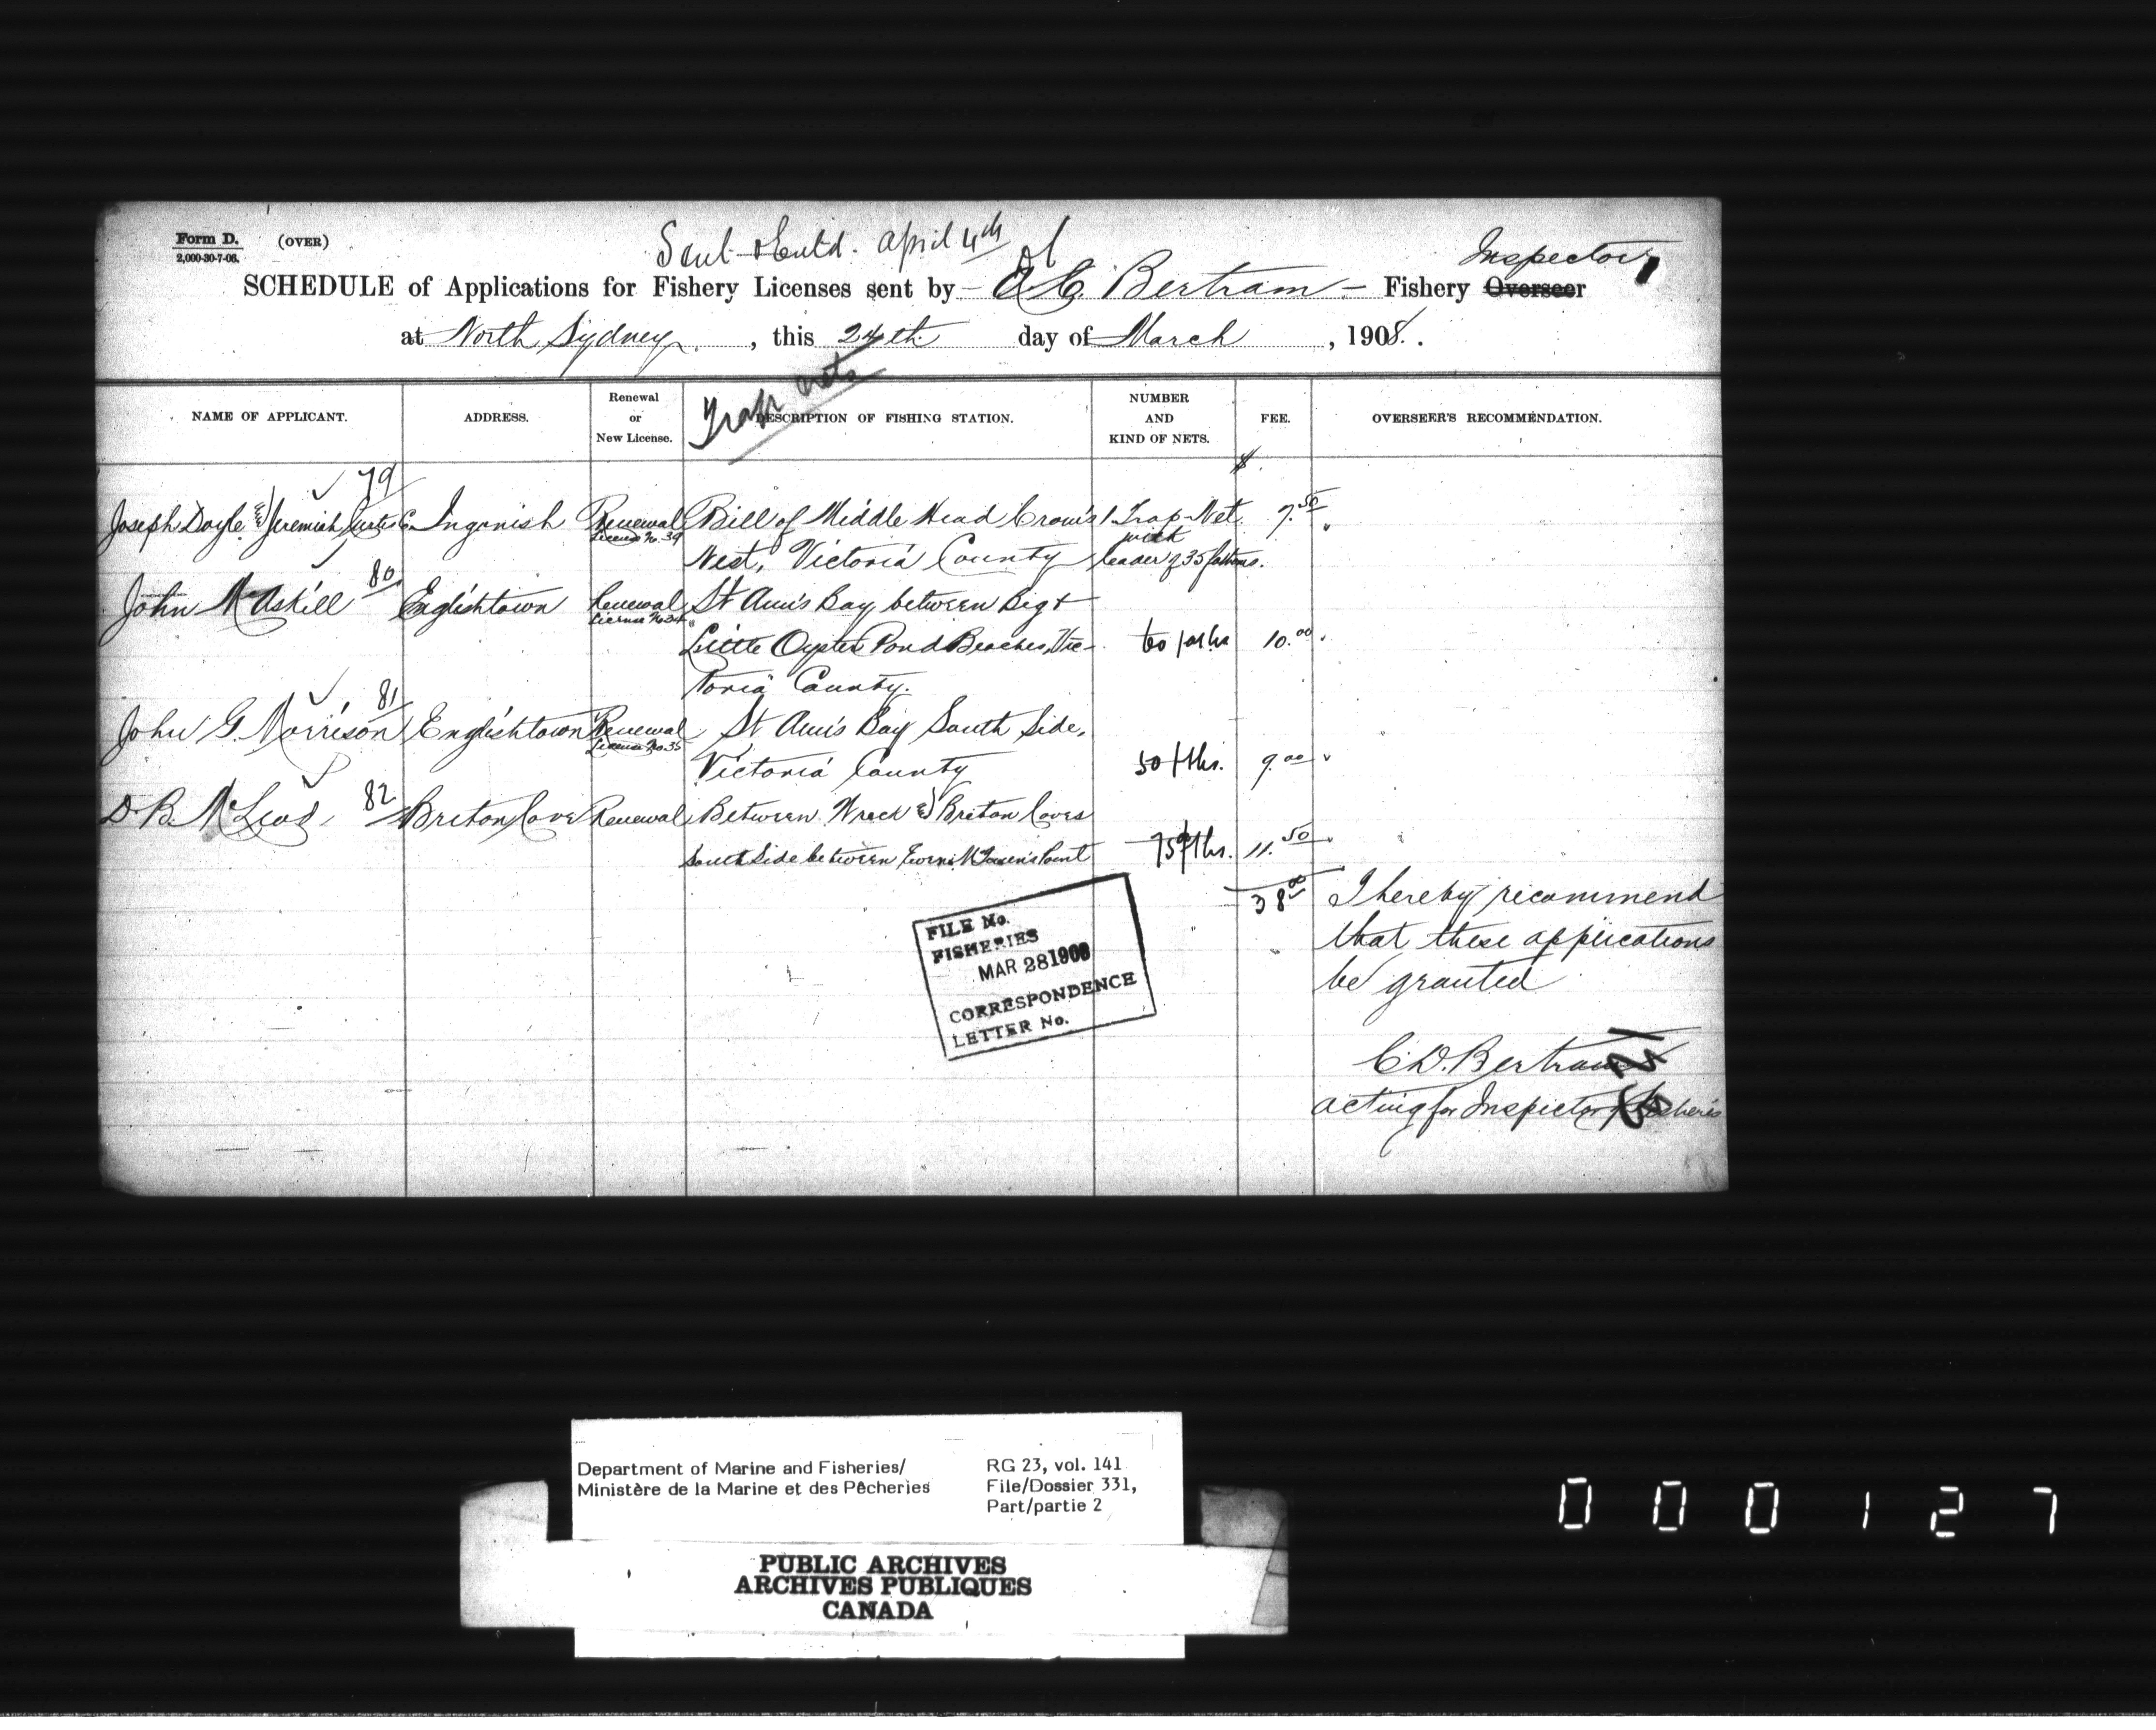 Form D. (OVER)
2,000-30-7-06.
Sent & Entd. April 4th
SCHEDULE of Applications for Fishery Licenses sent by - A. C. Bertram - Fishery Overseer Inspector
at North Sydney, this 24th day of March, 1908.
Trap nets
NAME OF APPLICANT. ADDRESS. Renewal or New License. DESCRIPTION OF FISHING STATION. NUMBER AND KIND OF NETS. FEE. OVERSEER'S RECOMMENDATION.
$
79
Joseph Doyle & Jeremiah Curtis Ingonish Renewal Bill of Middle Head Crow's 1 Trap-Net 7.50 "
License No. 39 with
Nest, Victoria County leader of 35 fathoms.
80
John McAskill Englishtown Renewal St Ann's Bay between Big &
License No 34
Little Oyster Pond Beaches, Vic- 60 faths 10.00
toria County.
81
John G. Morrison Englishtown Renewal St Ann's Bay South Side,
License No. 35
Victoria County 50 fths. 9.00 "
82
D. B. McLeod, Breton Cove Renewal Between Wreck & Breton Coves
South Side between Point 75 fths. 11.50 "
38.00 I hereby recommend
that these applications
be granted
C. D. Bertram
acting for Inspector of Fisheries
FILE No.
FISHERIES
MAR 28 1908
CORRESPONDENCE
LETTER No.
Department of Marine and Fisheries/
Ministère de la Marine et des Pêcheries
RG 23, vol. 141
File/Dossier 331,
Part/partie 2
PUBLIC ARCHIVES
ARCHIVES PUBLIQUES
CANADA
000127